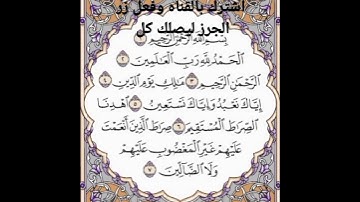 اشترك بالقناة وفعل زر
الجرز ليصلك كل
بِسْمِ اللَّهِ الرَّحْمَٰنِ الرَّحِيمِ ١
الْحَمْدُ لِلَّهِ رَبِّ الْعَالَمِينَ ٢
الرَّحْمَٰنِ الرَّحِيمِ ٣ مَالِكِ يَوْمِ الدِّينِ ٤
إِيَّاكَ نَعْبُدُ وَإِيَّاكَ نَسْتَعِينُ ٥ اهْدِنَا
الصِّرَاطَ الْمُسْتَقِيمَ ٦ صِرَاطَ الَّذِينَ أَنْعَمْتَ
عَلَيْهِمْ غَيْرِ الْمَغْضُوبِ عَلَيْهِمْ
وَلَا الضَّالِّينَ ٧